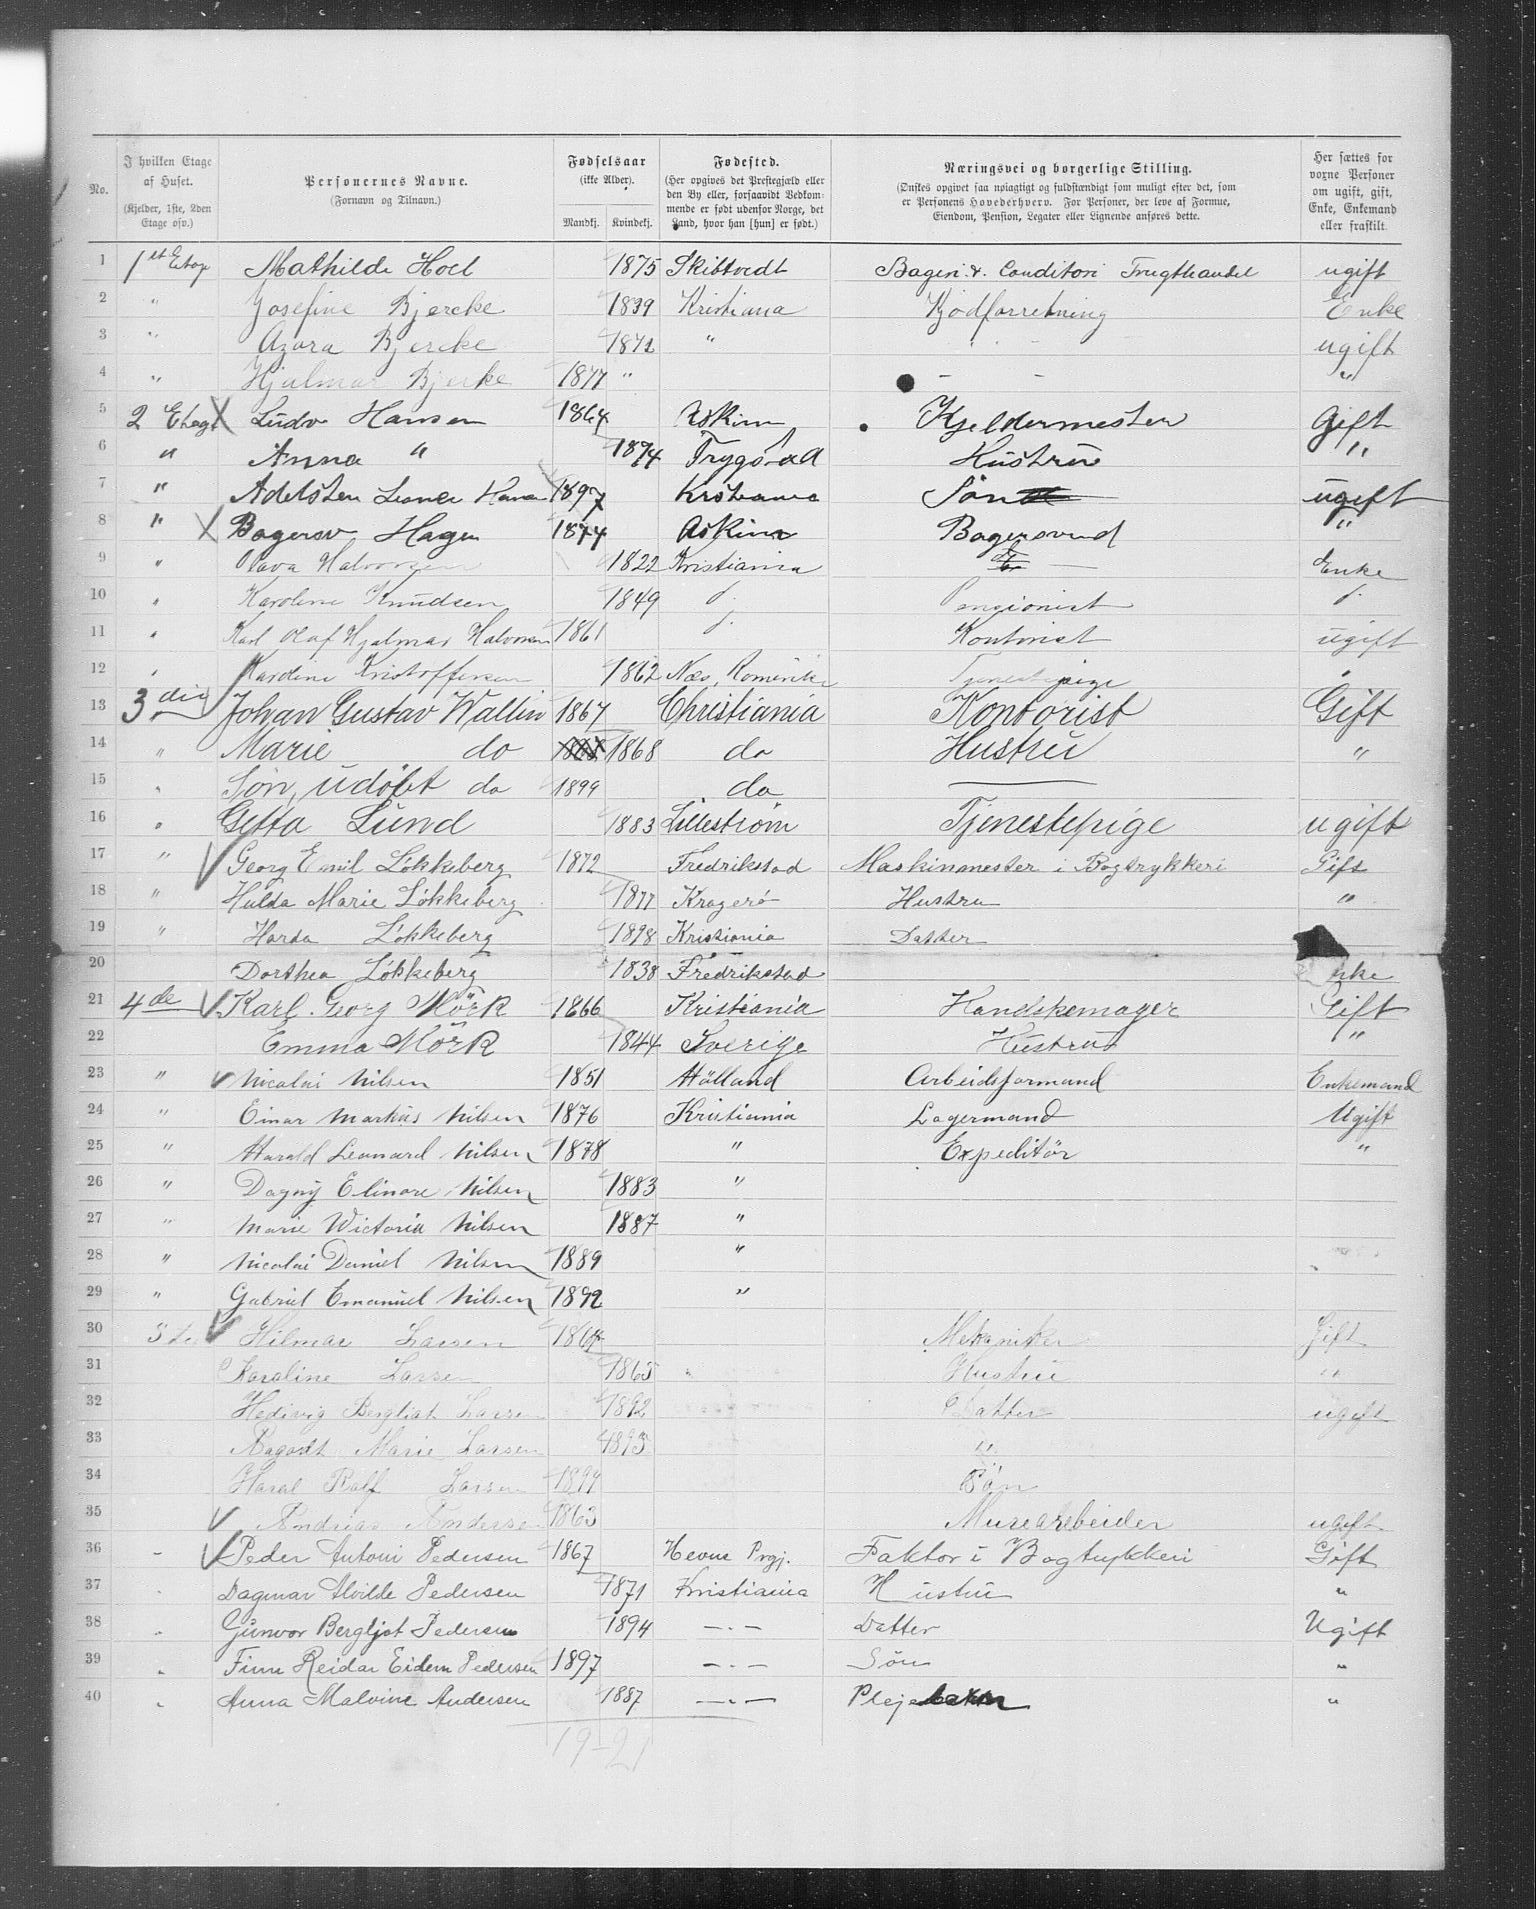 No. I hvilken Etage af Huset. (Kjelder, 1ste, 2den Etage osv.) Personernes Navne. (Fornavn og Tilnavn.) Fødselsaar (ikke Alder). Mandkj. Kvindekj. Fødested. (Her opgives det Prestegjæld eller den By eller, forsaavidt Vedkommende er født udenfor Norge, det Land, hvor han [hun] er født.) Næringsvei og borgerlige Stilling. (Ønskes opgivet saa nøiagtigt og fuldstændigt som muligt efter det, som er Personens Hovederhverv. For Personer, der leve af Formue, Eiendom, Pension, Legater eller Lignende anføres dette. Her sættes for voxne Personer om ugift, gift, Enke, Enkemand eller fraskilt.
1 1st Etage Mathilde Hoel 1875 Skibtvedt Bageri & Conditori Frugthandel ugift
2 " Josefine Bjercke 1839 Kristiana Kjödforretning Enke
3 " Azora Bjercke 1872 " ugift
4 " Hjalmar Bjerke 1877 " - - "
5 2 Etage Ludv Hansen 1864 Askim Kjeldermester gift
6 " Anna " 1874 Trygstad Hustru "
7 " Adelsten 1897 Krstiania Sön ugift
8 " Bagersv Hagen 1874 Askim Bagersvend "
9 " Olava Halvorsen 1822 Kristiania Enke
10 " Karoline Knudsen 1849 d. Pensionist d.
11 " Karl Olaf Hjalmar Halvorsen 1861 d. Kontorist ugift
12 " Karoline Kristoffersen 1862 Næs, Romerike Tjenestepige "
13 3die Johan Gustav Wallin 1867 Christiania Kontorist Gift
14 " Marie do 1868 do Hustru "
15 " Søn, udöbt do 1899 do
16 " Getta Lund 1883 Lilleström Tjenestepige ugift
17 " Georg Emil Lökkeberg 1872 Fredrikstad Maskinmester i Bogtrykkeri Gift
18 " Hulda Marie Lökkeberg 1877 Kragerö Hustru "
19 " Harda Lökkeberg 1898 Kristiania Datter
20 Dorthea Lökkeberg 1838 Fredrikstad nke
21 4de Karl Georg Mörk 1866 Kristiania Handskemager Gift
22 Emma Mörk 1844 Sverige Hustru "
23 " Nicolai Nilsen 1851 Hölland Arbeidsformand Enkemand
24 " Einar Markus Nilsen 1876 Kristiania Lagermand Ugift
25 " Harald Leonard Nilsen 1878 " Expeditör "
26 " Dagny Elinore Nilsen 1883 "
27 " Marie Wictoria Nilsen 1887 "
28 " Nicolai Daniel Nilsen 1889 "
29 " Gabriel Emanuel Nilsen 1892 "
30 5te Hilmar Larsen 1864 Mekaniker Gift
31 Karoline Larsen 1865 " Hustru "
32 Hedivig Bergliot Larsen 1892 Datter ugift
33 Marie Larsen 1895 "
34 Haral Ralf Larsen 1899 Sön
35 Andrias Anderse 1863 Murearbeider ugift
36 - Peder Antoni Pedersen 1867 Hevne Prgj. Faktor i Bogtrykkeri Gift
37 " Dagmar Alvilde Pedersen 1871 Kristiania Hustru "
38 " Gunvor Bergljot Pedersen 1894 —"— Datter Ugift
39 " Finn Reidar Eidem Pedersen 1897 —"— Sön "
40 " Anna Malvine Andersen 1887 —"— Pleje "
19-21